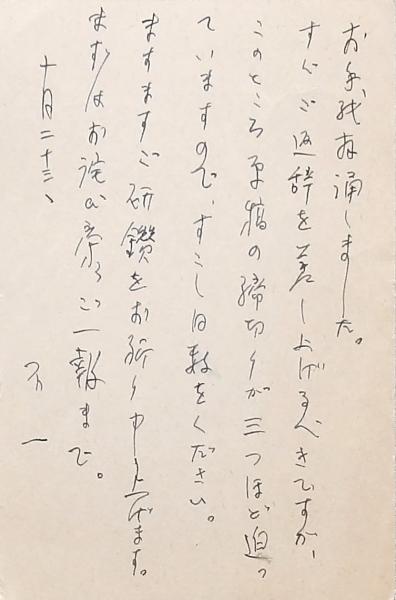 お手紙拝誦しました。
すぐご返辞を差し上げるべきですが、
このところ原稿の締切りが三つほど迫っ
ていますので、すこし日数をください。
ますますご研鑽をお祈り申し上げます。
まずはお詫び旁々ご一報まで。
十月二十三、
不一